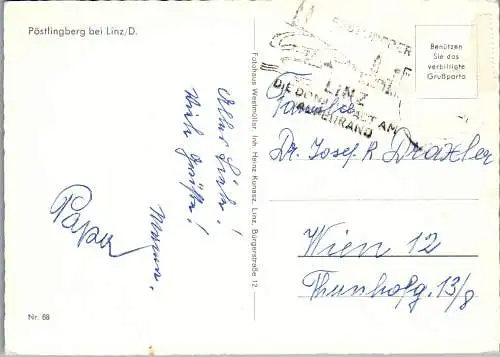 Pöstlingberg bei Linz/D.
Alles Liebe!
Viele Grüße!
Mama,
Papa
Nr. 68
Fotohaus Westmüller, Inh. Heinz Kunasz, Linz, Bürgerstraße 12
LINZ
DIE DONAUSTADT AM
ALPENRAND
Benützen
Sie das
verbilligte
Grußporto
Familie
Dr. Josef R Draxler
Wien 12
Thunhofg. 13/8